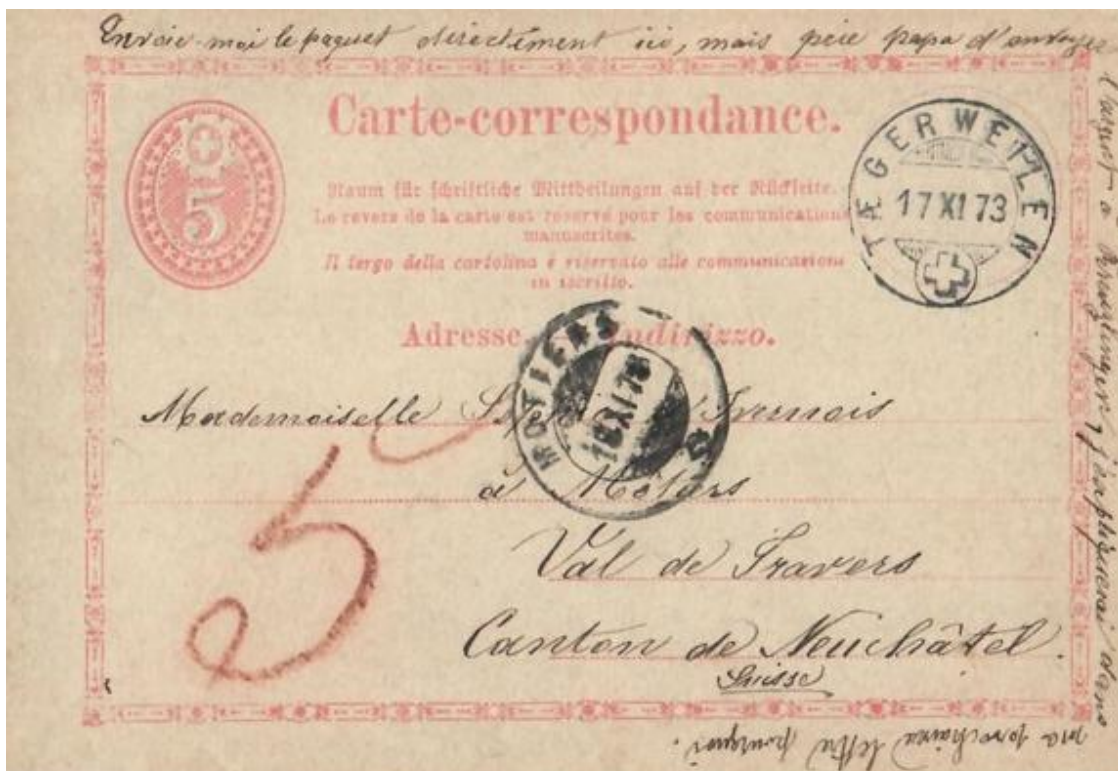 Envoie-moi le paquet directement ici, mais prie papa d'envoyer
l'argent à
Carte-correspondance.
5
Raum für schriftliche Mittheilungen auf der Rückseite.
Le revers de la carte est réservé pour les communications
manuscrites.
Il tergo della cartolina è riservato alle communicazioni
in iscritto.
TÆGERWEILEN
17 XI 73
Adresse. Indirizzo.
MOTIERS
18 XI 73
Mademoiselle d'Ivernois
à Môtiers
5
Val de Travers
Canton de Neuchâtel.
Suisse
j'expliquerai dans
ma prochaine lettre pourquoi.